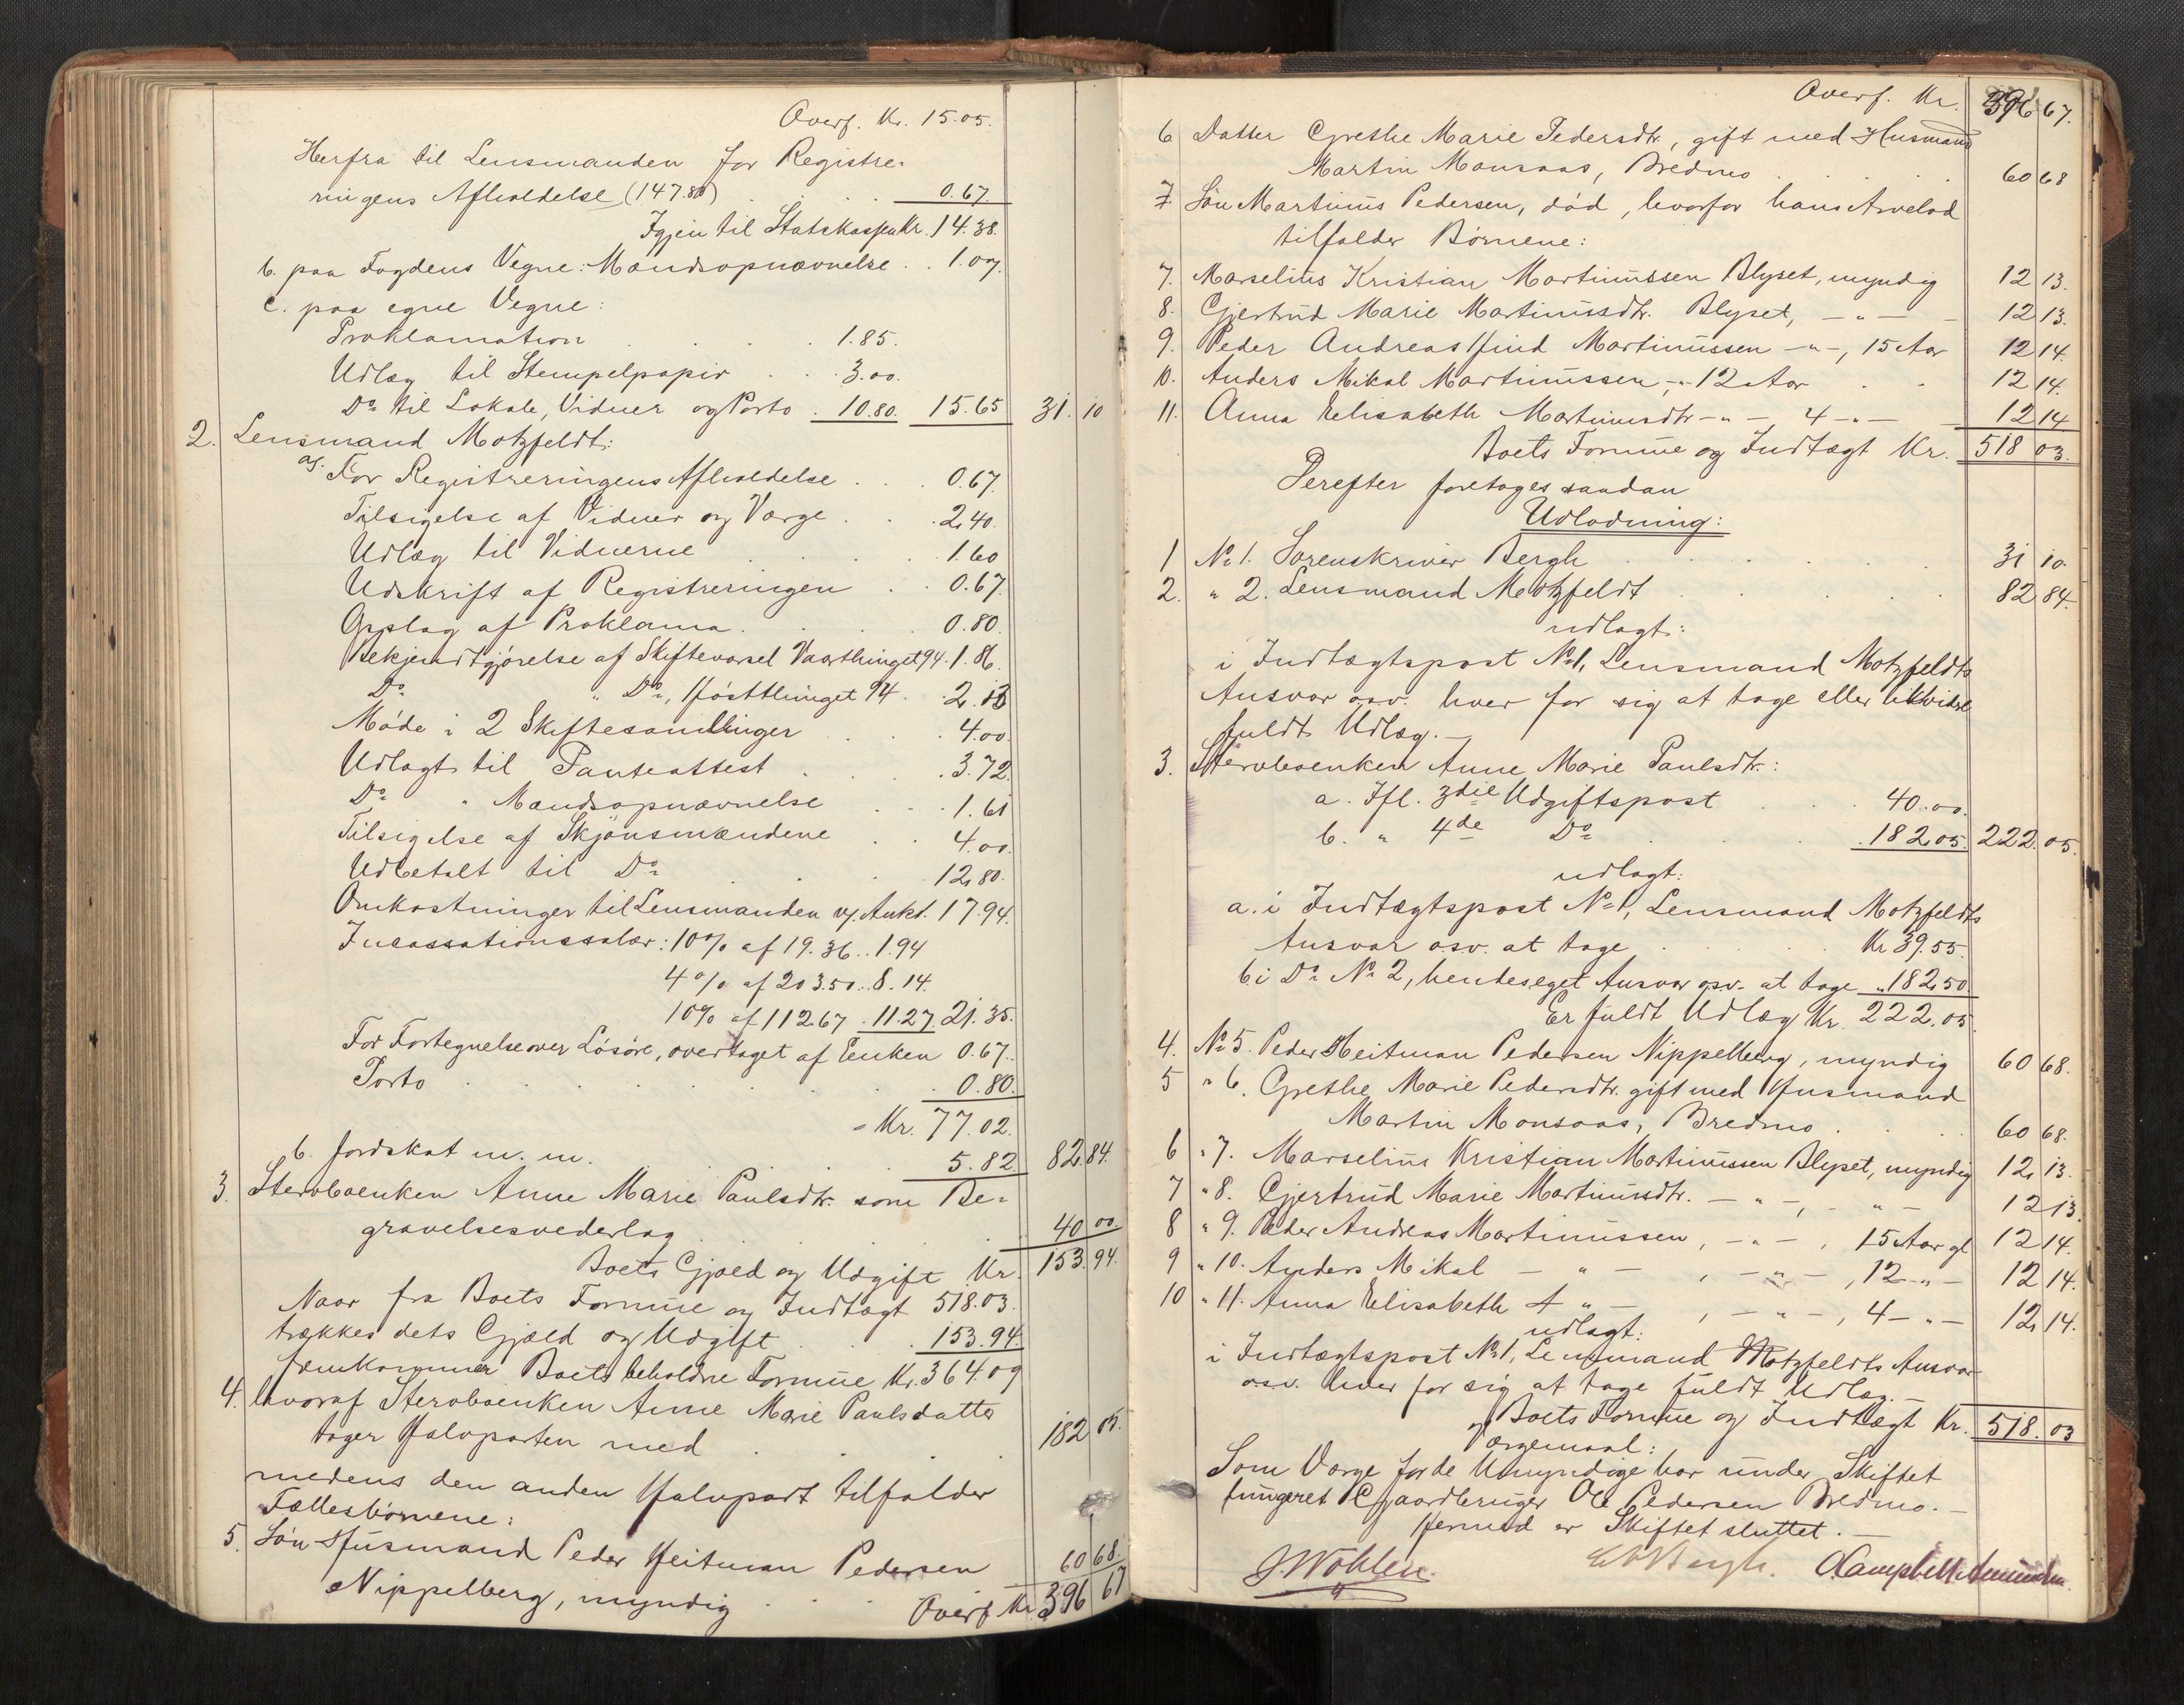 Overf. Kr. 15.05.
Herfra til Lensmanden for Registre-
ringens Afholdelse (147.80) . . . 0.67.
Igjen til Statskassen Kr. 14.38.
b. paa Fogdens Vegne: Mandsopnævnelse . . 1.07.
c. paa egne Vegne:
Proklamation . . . . 1.85.
Udlæg til Stempelpapir . . . 3.00.
Do til Lokale, Vidner og Porto . 10.80. 15.65 31. 10
2. Lensmand Motzfeldt:
a. For Registreringens Afholdelse . . . 0.67.
Tilsigelse af Vidner og Værge . . . 2.40.
Udlæg til Vidnerne . . . 1.60
Udskrift af Registreringen . . 0.67.
Opslag af Proklama . . . 0.80.
Bekjendtgjørelse af Skiftevarsel Vaarthinget 94. 1.86.
Do " Do, Høstthinget 94 . . 2.13
Møde i 2 Skiftesamlinger . . . 4.00.
Udlagt til Panteattest . . . 3.72.
Do " Mandsopnævnelse . . . 1.61
Tilsigelse af Skjønsmændene . . 4.00.
Udbetalt til Do . . . 12.80.
Omkostninger til Lensmanden v. Aukt. 17.94.
Incassationssalær: 10% af 19.36 . . 1.94
4% af 203.50 . . 8.14.
10% af 112.67 . 11.27. 21.35.
For Fortegnelse over Løsøre, overtaget af Enken 0.67.
Porto . . . . . . 0.80.
Kr. 77.02.
b. Jordskat m. m. . . . 5.82 82.84.
3. Stervboenken Anne Marie Paulsdtr. som Be-
gravelsesvederlag . . . 40 00
Boets Gjæld og Udgift Kr. 153.94.
Naar fra Boets Formue og Indtægt 518.03.
trækkes dets Gjæld og Udgift . . 153.94.
fremkommer Boets beholdne Formue Kr. 364.09
4. hvoraf Stervboenken Anne Marie Paulsdatter
tager Halvparten med . . . 182 05.
medens den anden Halvpart tilfalder
Fællesbørnene:
5. Søn Husmand Peder Heitman Pedersen
Nippelberg, myndig . . . 60 68.
Overf. Kr. 396 67
Overf. Kr. 396 67.
6 Datter Grethe Marie Pedersdtr., gift med Husmand
Martin Monsaas, Bredmo . . . 60 68
7 Søn Martinus Pedersen, død, hvorfor hans Arvelod
tilfalder Børnene:
7. Marselius Kristian Martinussen Blyset, myndig 12 13.
8. Gjertrud Marie Martinusdtr. Blyset, — " — 12 13.
9. Peder Andreas Hind Martinussen — " —, 15 Aar 12 14.
10. Anders Mikal Martinussen, — " — 12 Aar . . 12 14.
11. Anna Elisabeth Martinusdtr — " — 4 — " — 12 14
Boets Formue og Indtægt Kr. 518 03.
Derefter foretoges saadan
Udlodning:
1 No 1. Sorenskriver Bergh . . . . 31 10.
2. " 2. Lensmand Motzfeldt . . . 82 84.
udlagt:
i Indtægtspost No 1, Lensmand Motzfeldts
Ansvar osv. hver for sig at tage eller likvidere
fuldt Udlæg. —
3. Stervboenken Anne Marie Paulsdtr.:
a. Ifl. 3die Udgiftspost . . 40.00.
b. " 4de Do . . . 182.05. 222.05.
udlagt:
a. i Indtægtspost No 1, Lensmand Motzfeldts
Ansvar osv. at tage . . . Kr 39.55.
b. i Do No 2, hendes eget Ansvar osv. at tage " 182.50
Er fuldt Udlæg Kr. 222.05.
4. No 5. Peder Heitman Pedersen Nippelberg, myndig 60 68.
5 " 6. Grethe Marie Pedersdtr. gift med Husmand
Martin Monsaas, Bredmo . . . 60 68.
6 " 7. Marselius Kristian Martinussen Blyset, myndig 12 13.
7 " 8. Gjertrud Marie Martinusdtr. — " —, — " — 12 13.
8 " 9. Peder Andreas Martinussen, — " —, 15 Aar gl 12 14.
9 " 10. Anders Mikal — " —, — " —, 12 — " — 12 14.
10 " 11. Anna Elisabeth — " —, — " —, 4 — " — 12 14.
udlagt:
i Indtægtspost No 1, Lensmand Motzfeldts Ansvar
osv. hver for sig at tage fuldt Udlæg. —
Boets Formue og Indtægt Kr. 518.03
Værgemaal:
Som Værge for de Umyndige har under Skiftet
fungeret Gaardbruger Ole Pedersen Bredmo. —
Hermed er Skiftet sluttet. —
J. Wøhlen. Bergh.